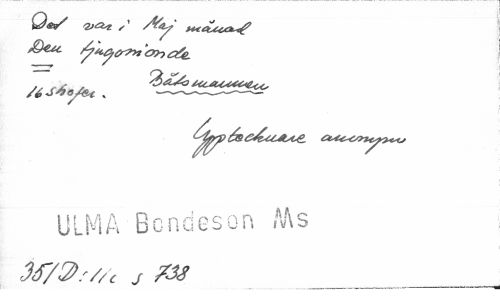 Det var i Maj månad
Den tjugonionde
Båtsmannen
16 strofer.
Upptecknare anonym
ULMA Bondeson Ms
351D:11c s 738